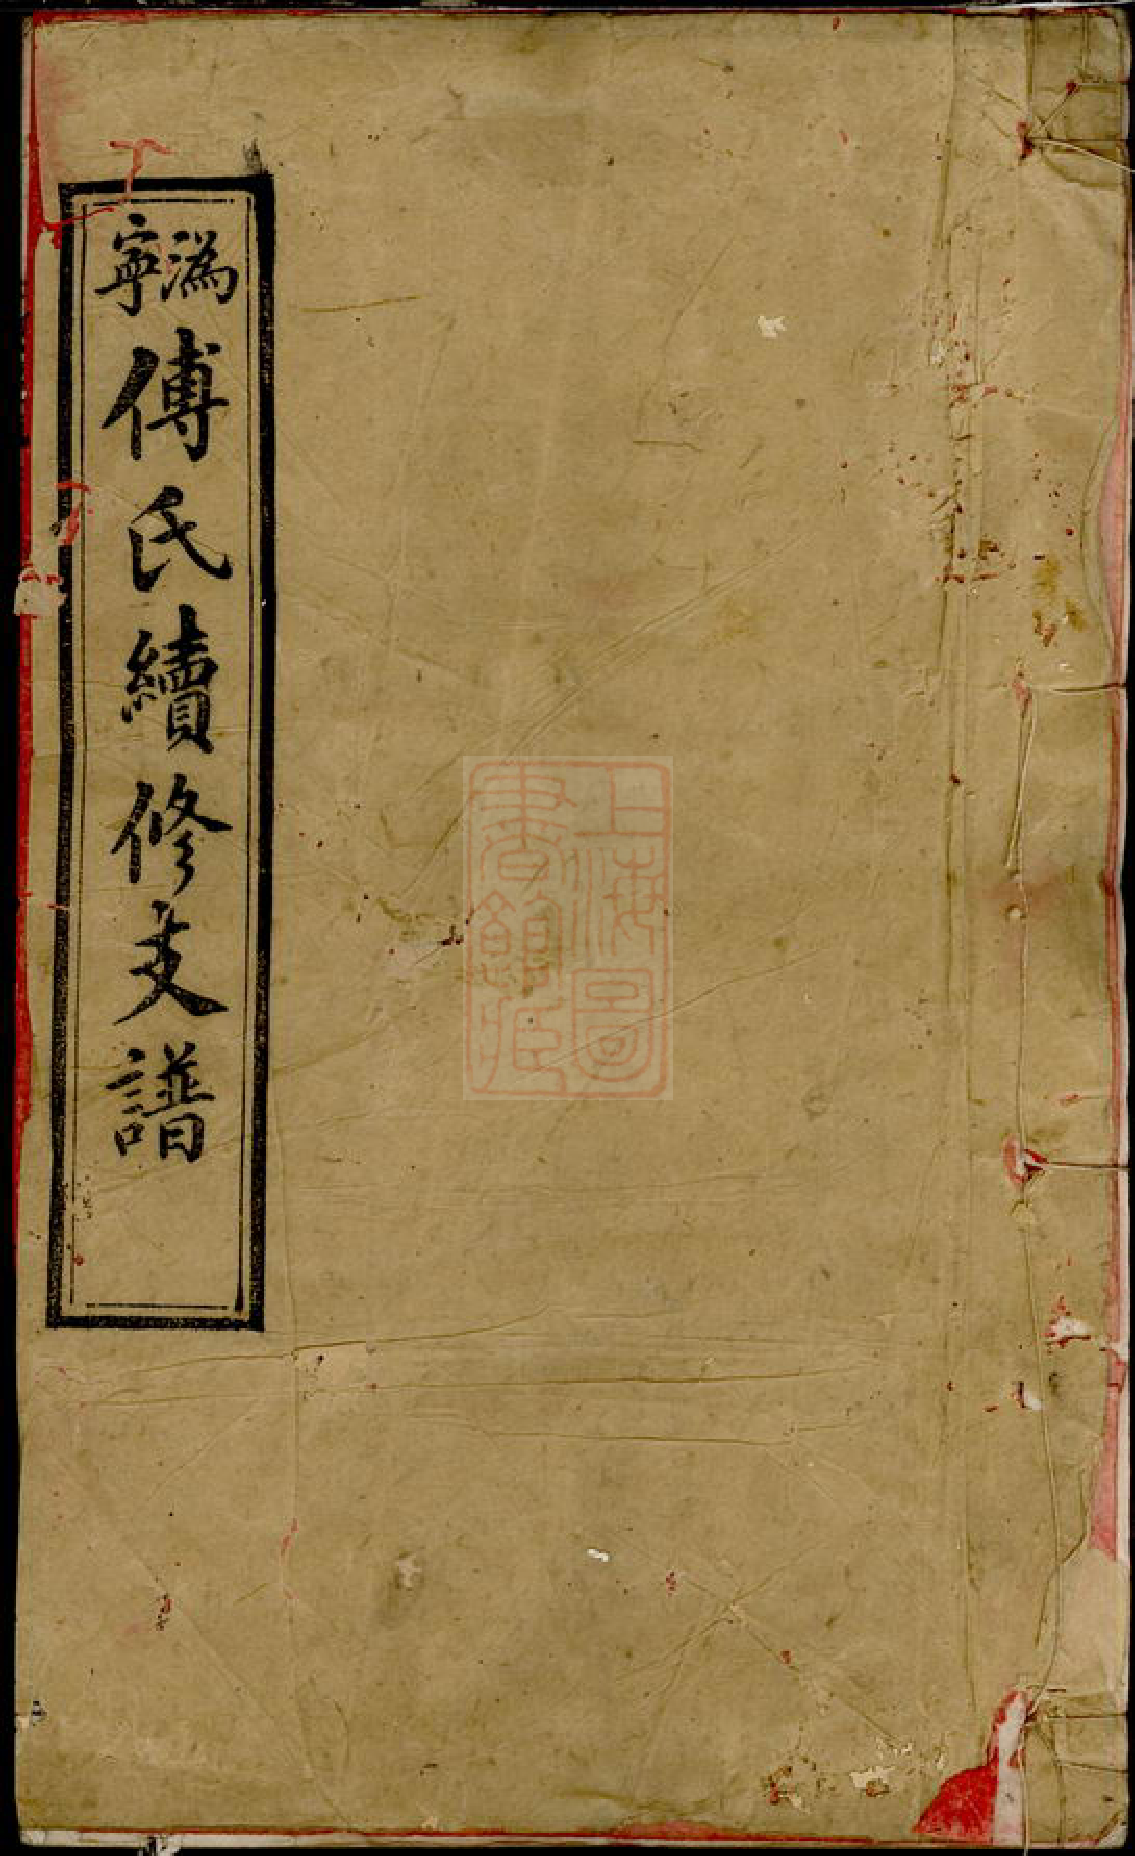 溈寧傅氏續修支譜
上海圖
書館藏